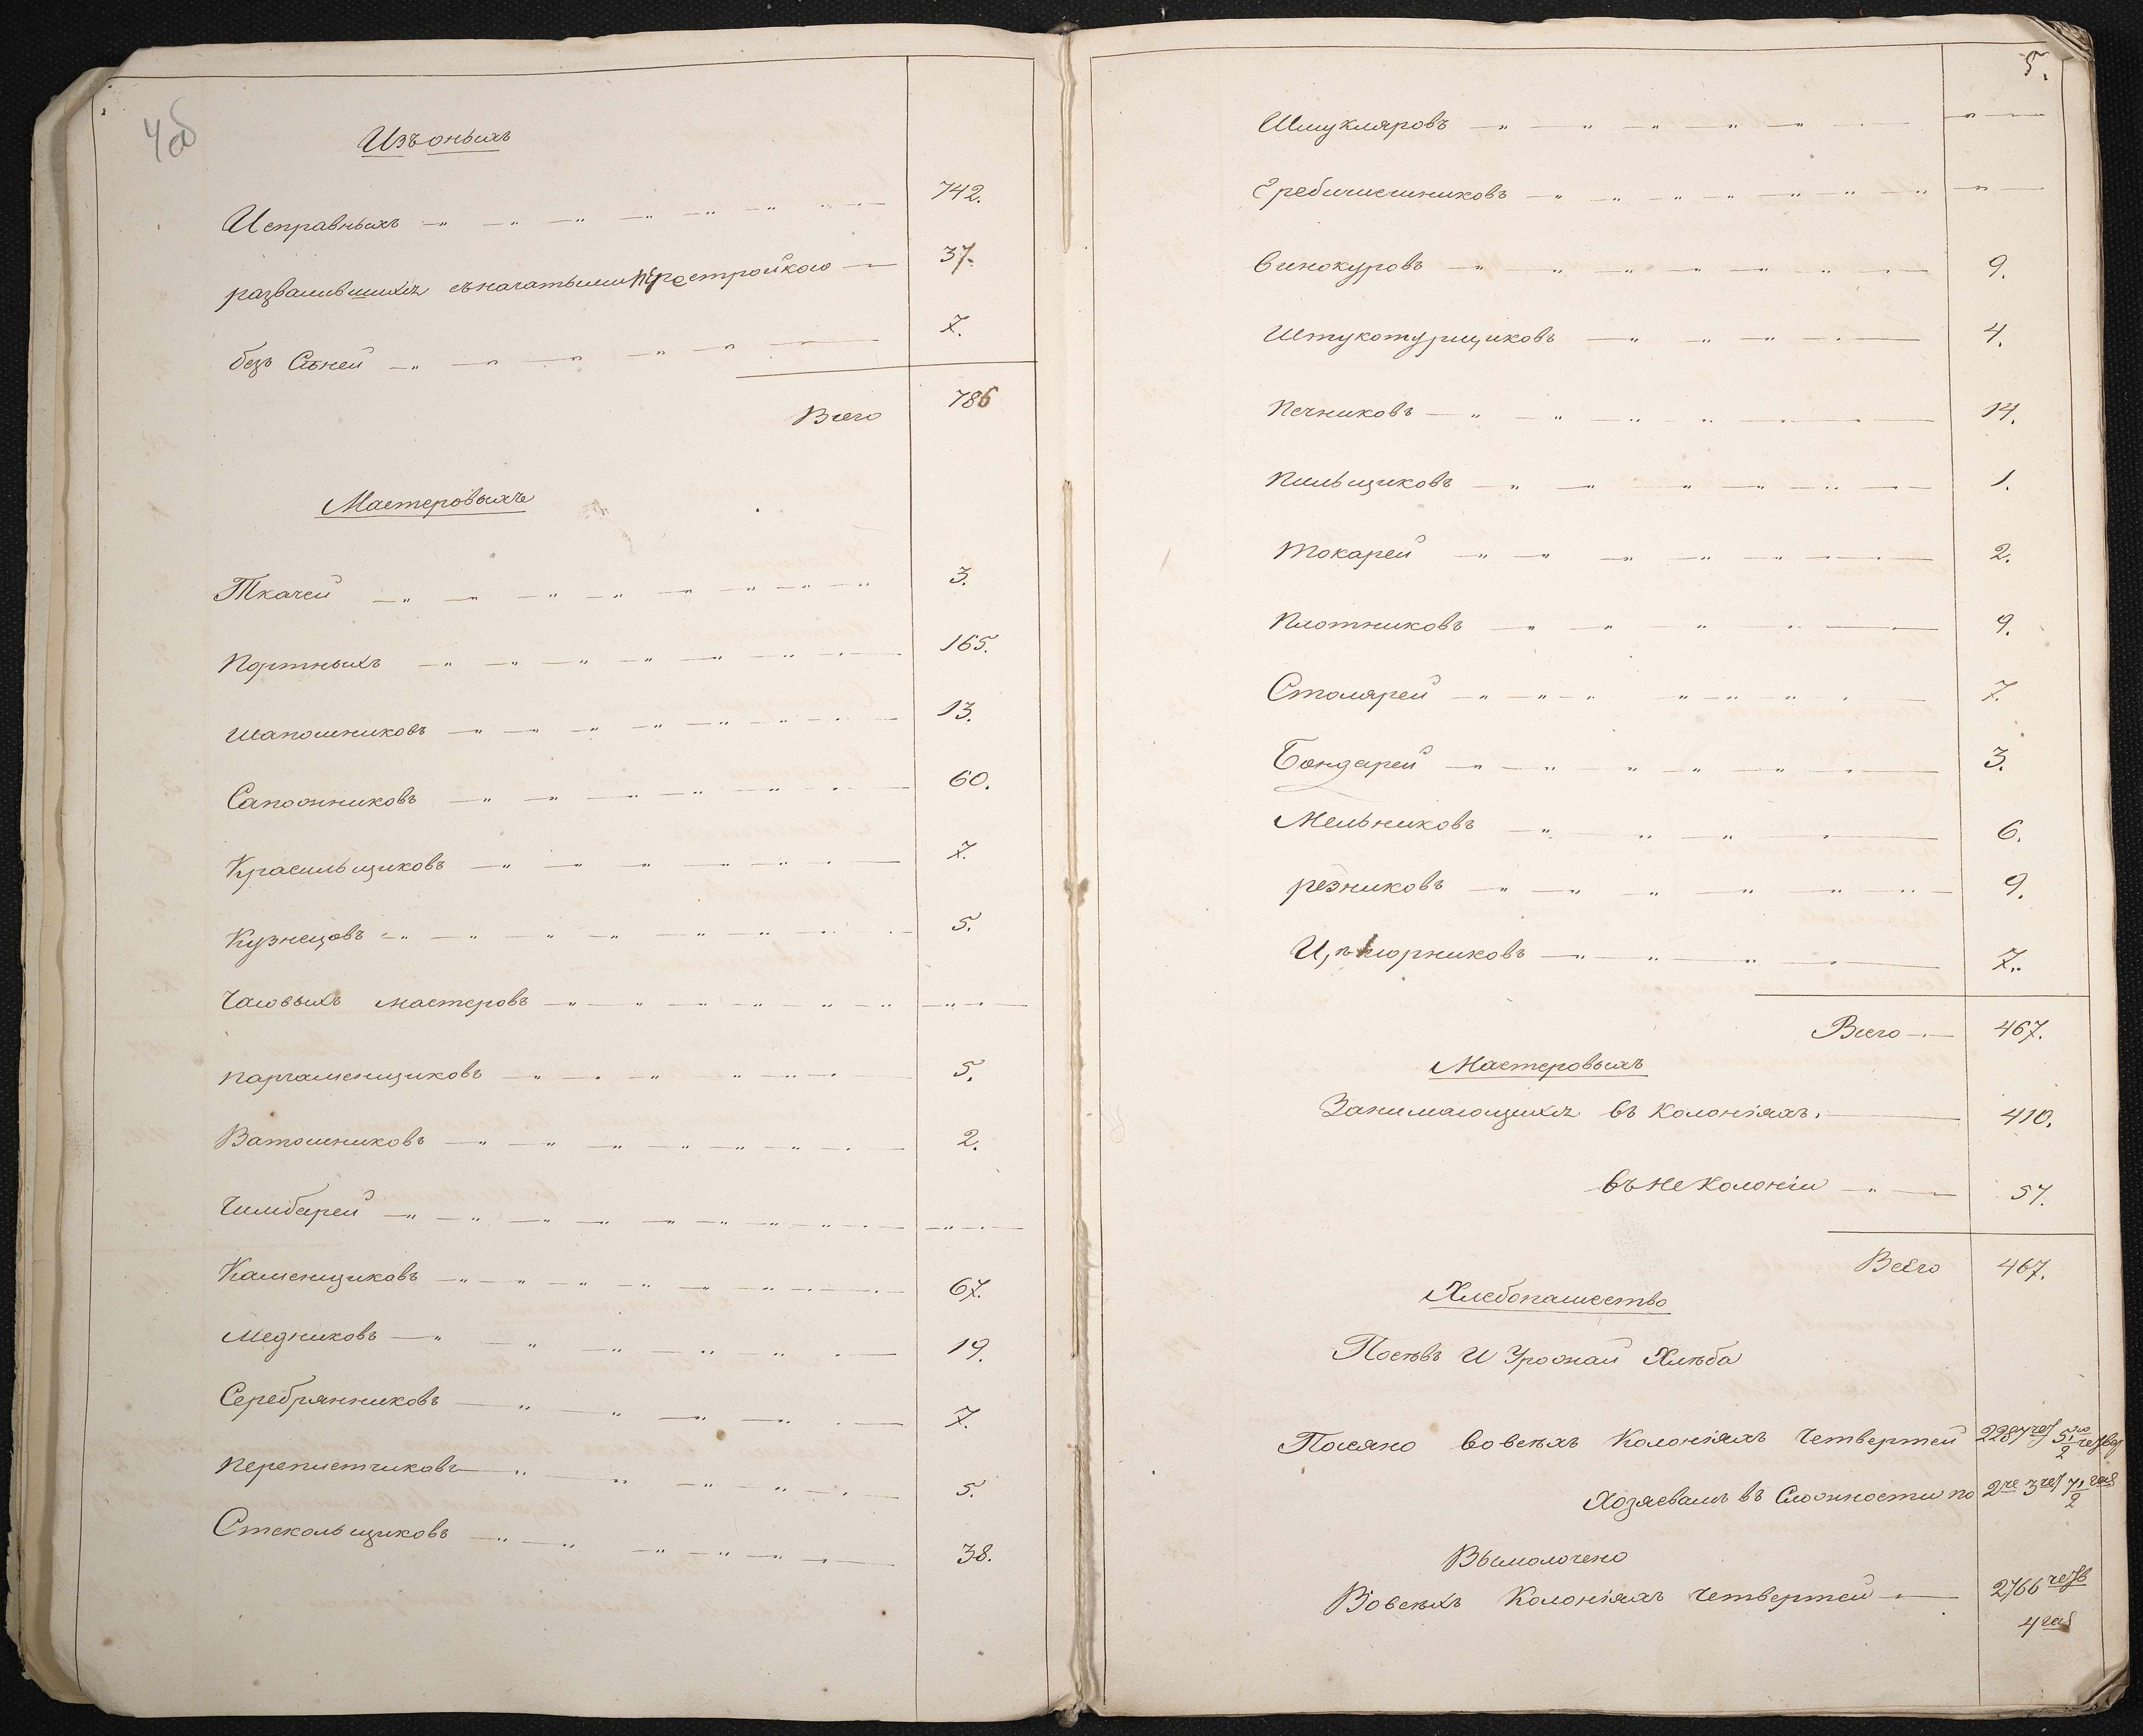 4об
Изъ оныхъ
Исправныхъ 742.
развалившихся съ начатыми перестройкою 37.
безъ Сѣней 7.
Всего 786
Мастеровыхъ
Ткачей 3.
Портныхъ 165.
Шапошниковъ 13.
Сапожниковъ 60.
Красильщиковъ 7.
Кузнецовъ 5.
Часовыхъ мастеровъ
паргаменщиковъ 5.
Ватошниковъ 2.
Чимбарей
Каменщиковъ 67.
Медниковъ 19.
Серебрянниковъ 7.
Переплетчиковъ 5.
Стекольщиковъ 38.
5.
Шмукляровъ
Гребинишниковъ
Винокуровъ 9.
Штукотурщиковъ 4.
Печниковъ 14.
Пильщиковъ 1.
Токарей 2.
Плотниковъ 9.
Столярей 7.
Бондарей 3.
Мельниковъ 6.
резниковъ 9.
Цѣлюрниковъ 7.
Всего 467.
Мастеровыхъ
Занимающихся въ Колоніяхъ. 410.
въ не Колоніи 57.
Всего 467.
Хлебопашество
Посѣвъ И Урожай Хлѣба
Посяно вовсѣхъ Колоніяхъ Четвертей 2287
Хозяевамъ въ Сложности по
Вымолочено
Вовсѣхъ Колоніяхъ Четвертей 2766 четв
4